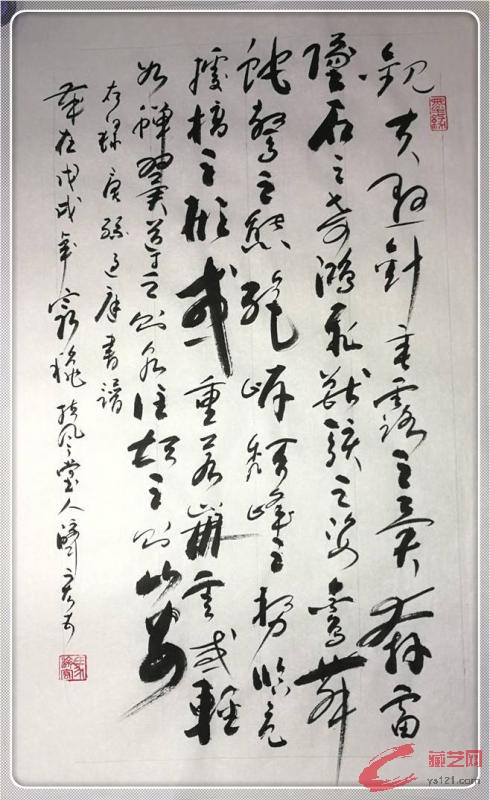 觀夫懸針垂露之異奔雷
墜石之奇鴻飛獸駭之姿鸞舞
蛇驚之態絕岸頹峰之勢臨危
據槁之形或重若崩雲或輕
如蟬翼導之則泉注頓之則山安
右錄唐孫過庭書譜
歲在戊戌年秋風堂人
藏艺网
ys121.com